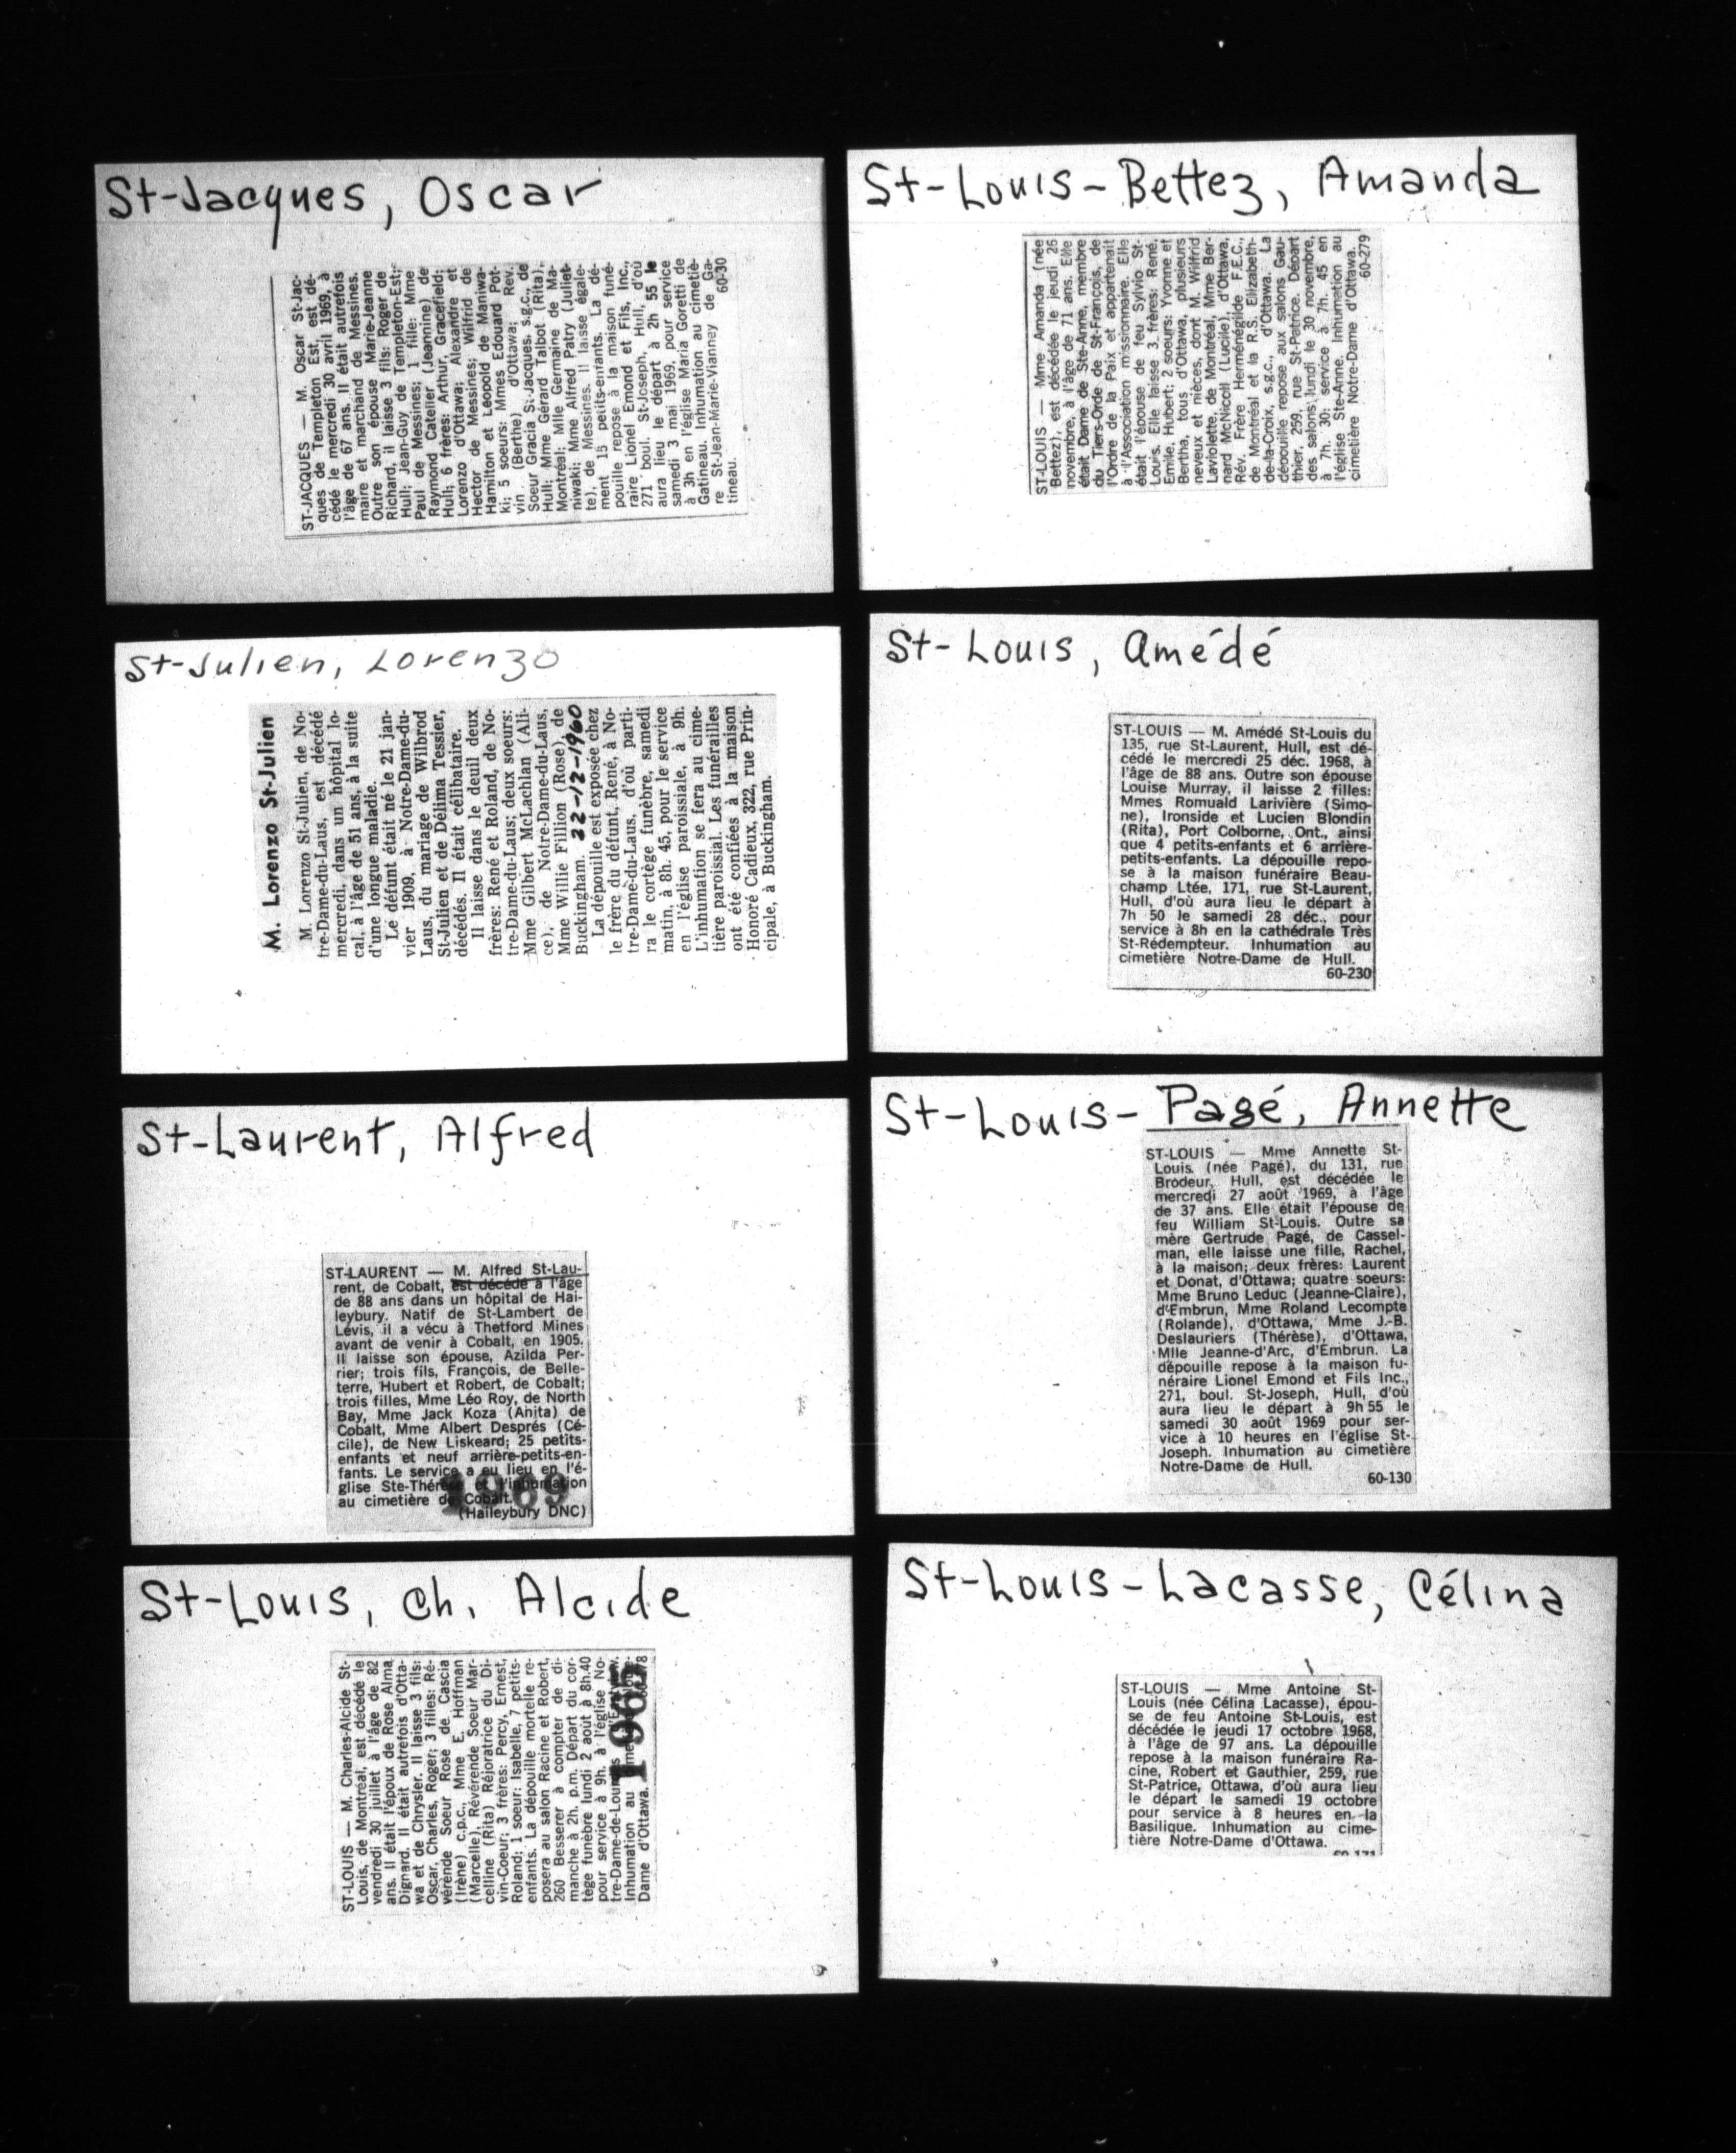 St-Jacques, Oscar
ST-JACQUES — M. Oscar St-Jac-
ques de Templeton Est, est dé-
cédé le mercredi 30 avril 1969, à
l'âge de 67 ans. Il était autrefois
maire et marchand de Messines.
Outre son épouse Marie-Jeanne
Richard, il laisse 3 fils: Roger de
Hull; Jean-Guy de Templeton-Est;
Paul de Messines; 1 fille: Mme
Raymond Catelier (Jeannine) de
Hull; 6 frères: Arthur, Gracefield;
Lorenzo d'Ottawa; Alexandre et
Hector de Messines; Wilfrid de
Hamilton et Léopold de Maniwa-
ki; 5 soeurs: Mmes Edouard Pot-
vin (Berthe) d'Ottawa; Rev.
Soeur Gracia St-Jacques, s.g.c., de
Hull; Mme Gérard Talbot (Rita),
Montréal; Mlle Germaine de Ma-
niwaki; Mme Alfred Patry (Juliet-
te), de Messines. Il laisse égale-
ment 15 petits-enfants. La dé-
pouille repose à la maison funé-
raire Lionel Emond et Fils, Inc.,
271 boul. St-Joseph, Hull, d'où
aura lieu le départ à 2h 55 le
samedi 3 mai 1969, pour service
à 3h en l'église Maria Goretti de
Gatineau. Inhumation au cimetiè-
re St-Jean-Marie-Vianney de Ga-
tineau. 60-30
St-Louis-Bettez, Amanda
ST-LOUIS — Mme Amanda (née
Bettez), est décédée le jeudi 26
novembre, à l'âge de 71 ans. Elle
était Dame de Ste-Anne, membre
du Tiers-Orde de St-François, de
l'Ordre de la Paix et appartenait
à l'Association missionnaire. Elle
était l'épouse de feu Sylvio St-
Louis. Elle laisse 3 frères: René,
Emile, Hubert; 2 soeurs: Yvonne et
Bertha, tous d'Ottawa, plusieurs
neveux et nièces, dont M. Wilfrid
Laviolette, de Montréal, Mme Ber-
nard McNicoll (Lucile), d'Ottawa,
Rév. Frère Herménégilde F.E.C.,
de Montréal et la R.S. Elizabeth-
de-la-Croix, s.g.c., d'Ottawa. La
dépouille repose aux salons Gau-
thier, 259, rue St-Patrice. Départ
des salons lundi le 30 novembre,
à 7h. 30; service à 7h. 45 en
l'église Ste-Anne. Inhumation au
cimetière Notre-Dame d'Ottawa.
60-279
St-Julien, Lorenzo
M. Lorenzo St-Julien
M. Lorenzo St-Julien, de No-
tre-Dame-du-Laus, est décédé
mercredi, dans un hôpital lo-
cal, à l'âge de 51 ans, à la suite
d'une longue maladie.
Le défunt était né le 21 jan-
vier 1909, à Notre-Dame-du-
Laus, du mariage de Wilbrod
St-Julien et de Délima Tessier,
décédés. Il était célibataire.
Il laisse dans le deuil deux
frères: René et Roland, de No-
tre-Dame-du-Laus; deux soeurs:
Mme Gilbert McLachlan (Ali-
ce), de Notre-Dame-du-Laus,
Mme Willie Fillion (Rose), de
Buckingham. 22-12-1960
La dépouille est exposée chez
le frère du défunt, René, à No-
tre-Dame-du-Laus, d'où parti-
ra le cortège funèbre, samedi
matin, à 8h. 45, pour le service
en l'église paroissiale, à 9h.
L'inhumation se fera au cime-
tière paroissial. Les funérailles
ont été confiées à la maison
Honoré Cadieux, 322, rue Prin-
cipale, à Buckingham.
St-Louis, Amédé
ST-LOUIS — M. Amédé St-Louis du
135, rue St-Laurent, Hull, est dé-
cédé le mercredi 25 déc. 1968, à
l'âge de 88 ans. Outre son épouse
Louise Murray, il laisse 2 filles:
Mmes Romuald Larivière (Simo-
ne), Ironside et Lucien Blondin
(Rita), Port Colborne, Ont., ainsi
que 4 petits-enfants et 6 arrière-
petits-enfants. La dépouille repo-
se à la maison funéraire Beau-
champ Ltée, 171, rue St-Laurent,
Hull, d'où aura lieu le départ à
7h 50 le samedi 28 déc., pour
service à 8h en la cathédrale Très
St-Rédempteur. Inhumation au
cimetière Notre-Dame de Hull.
60-230
St-Laurent, Alfred
ST-LAURENT — M. Alfred St-Lau-
rent, de Cobalt, est décédé à l'âge
de 88 ans dans un hôpital de Hai-
leybury. Natif de St-Lambert de
Lévis, il a vécu à Thetford Mines
avant de venir à Cobalt, en 1905.
Il laisse son épouse, Azilda Per-
rier; trois fils, François, de Belle-
terre, Hubert et Robert, de Cobalt;
trois filles, Mme Léo Roy, de North
Bay, Mme Jack Koza (Anita) de
Cobalt, Mme Albert Després (Cé-
cile), de New Liskeard; 25 petits-
enfants et neuf arrière-petits-en-
fants. Le service a eu lieu en l'é-
glise Ste-Thérèse et l'inhumation
au cimetière de Cobalt.
(Haileybury DNC)
1969
St-Louis-Pagé, Annette
ST-LOUIS — Mme Annette St-
Louis (née Pagé), du 131, rue
Brodeur, Hull, est décédée le
mercredi 27 août 1969, à l'âge
de 37 ans. Elle était l'épouse de
feu William St-Louis. Outre sa
mère Gertrude Pagé, de Cassel-
man, elle laisse une fille, Rachel,
à la maison; deux frères: Laurent
et Donat, d'Ottawa; quatre soeurs:
Mme Bruno Leduc (Jeanne-Claire),
d'Embrun, Mme Roland Lecompte
(Rolande), d'Ottawa, Mme J.-B.
Deslauriers (Thérèse), d'Ottawa,
Mlle Jeanne-d'Arc, d'Embrun. La
dépouille repose à la maison fu-
néraire Lionel Emond et Fils Inc.,
271, boul. St-Joseph, Hull, d'où
aura lieu le départ à 9h 55 le
samedi 30 août 1969 pour ser-
vice à 10 heures en l'église St-
Joseph. Inhumation au cimetière
Notre-Dame de Hull.
60-130
St-Louis, Ch. Alcide
ST-LOUIS — M. Charles-Alcide St-
Louis, de Montréal, est décédé le
vendredi 30 juillet à l'âge de 82
ans. Il était l'époux de Rose Alma
Dignard. Il était autrefois d'Otta-
wa et de Chrysler. Il laisse 3 fils:
Oscar, Charles, Roger; 3 filles: Ré-
vérende Soeur Rose de Cascia
(Irène) c.p.c., Mme E. Hoffman
(Marcelle), Révérende Soeur Mar-
celline (Rita) Réjoratrice du Di-
vin-Coeur; 3 frères: Percy, Ernest,
Roland; 1 soeur: Isabelle, 7 petits-
enfants. La dépouille mortelle re-
posera au salon Racine et Robert,
260 Besserer à compter de di-
manche à 2h. p.m. Départ du cor-
tège funèbre lundi 2 août à 8h.40
pour service à 9h. à l'église No-
tre-Dame-de-Lourdes
Inhumation au
Dame d'Ottawa.
1965
St-Louis-Lacasse, Célina
ST-LOUIS — Mme Antoine St-
Louis (née Célina Lacasse), épou-
se de feu Antoine St-Louis, est
décédée le jeudi 17 octobre 1968,
à l'âge de 97 ans. La dépouille
repose à la maison funéraire Ra-
cine, Robert et Gauthier, 259, rue
St-Patrice, Ottawa, d'où aura lieu
le départ le samedi 19 octobre
pour service à 8 heures en la
Basilique. Inhumation au cime-
tière Notre-Dame d'Ottawa.